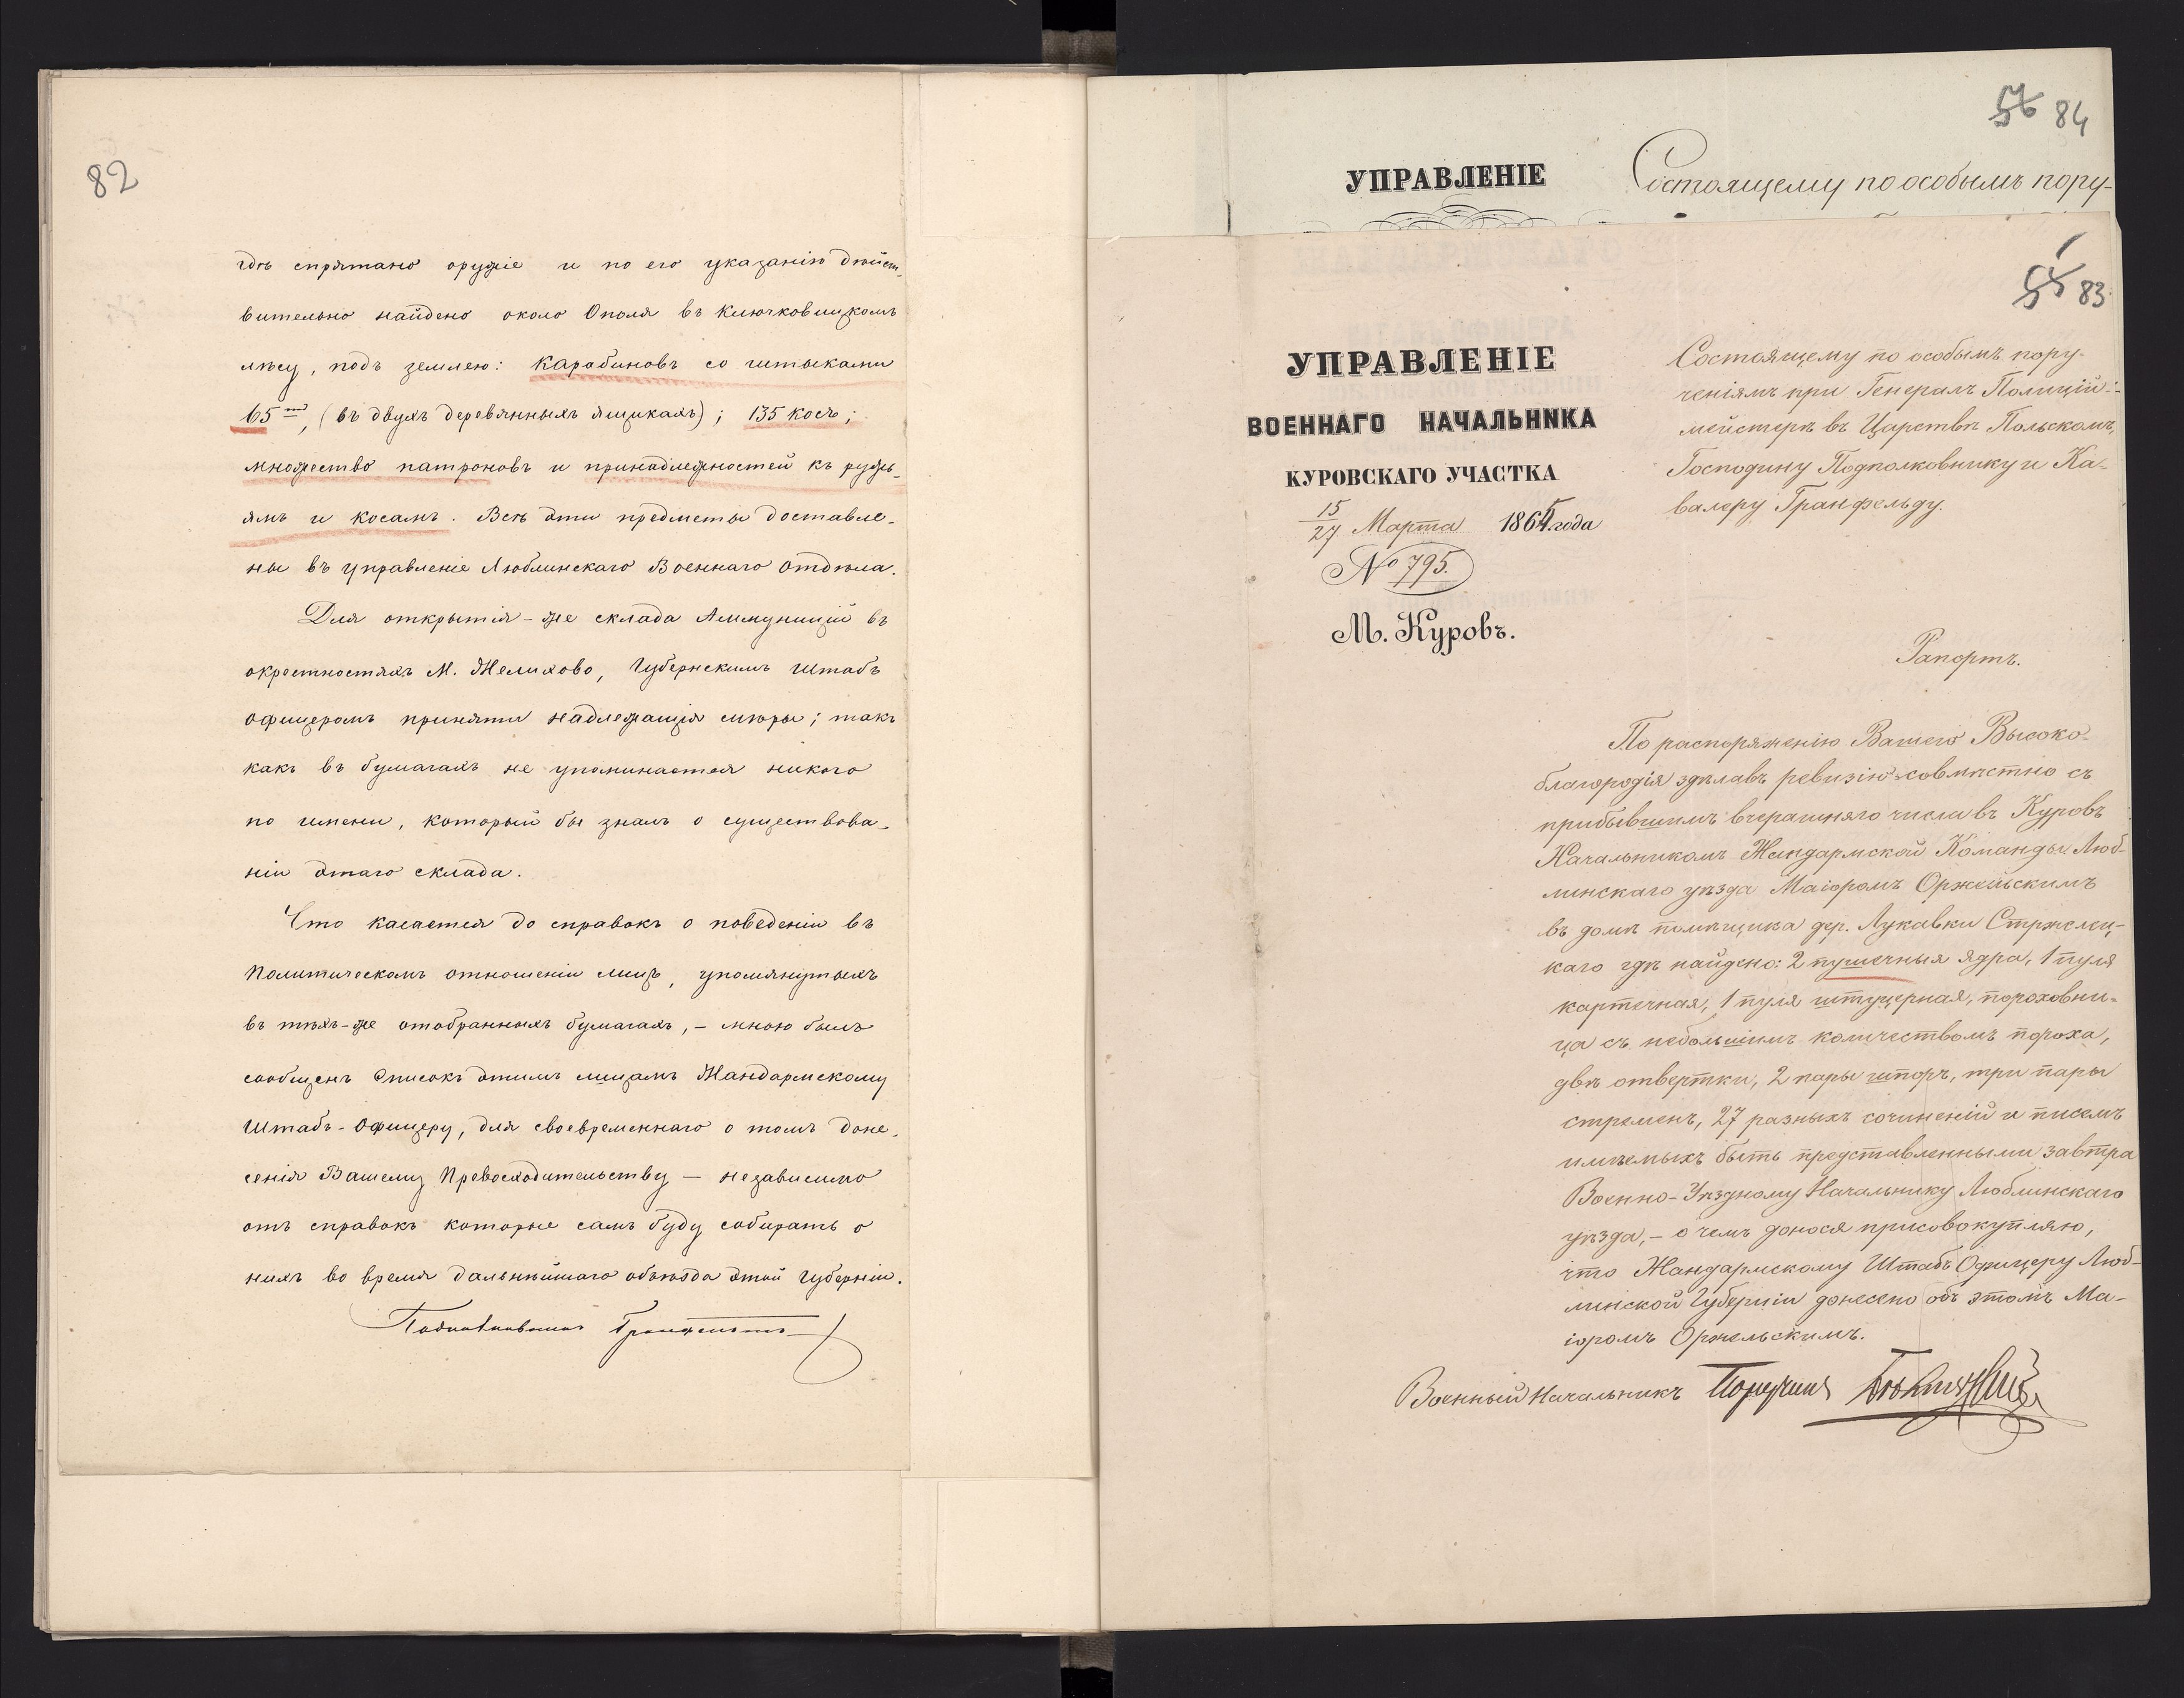 82
гдѣ спрятано оружіе и по его указанію дѣйст-
вительно найдено около Ополя въ Ключковицкомъ
лѣсу, подъ землею: карабиновъ со штыками
65 ть, (въ двухъ деревянныхъ ящикахъ); 135 косъ;
множество патроновъ и принадлежностей къ ружь-
ямъ и косамъ. Всѣ эти предметы доставле-
ны въ управленіе Люблинскаго Военнаго Отдѣла.
Для открытія-же склада Аммуниціи въ
окрестностяхъ М. Желихово, Губернскимъ Штабъ
офицеромъ приняты надлежащія мѣры; такъ
какъ въ бумагахъ не упоминается никого
по имени, который бы зналъ о существова-
ніи этаго склада.
Что касается до справокъ о поведеніи въ
Политическомъ отношеніи лицъ, упомянутыхъ
въ тѣхъ-же отобранныхъ бумагахъ, – мною былъ
сообщенъ Списокъ этимъ лицамъ Жандармскому
Штабъ-Офицеру, для своевременнаго о томъ доне-
сенія Вашему Превосходительству – независимо
отъ справокъ которые самъ буду собирать о
нихъ во время дальнѣйшаго объѣзда этой Губерніи.
Подполковникъ Гранфельдъ
84
УПРАВЛЕНІЕ
Состоящему по особымъ пору-
83
УПРАВЛЕНІЕ
ВОЕННАГО НАЧАЛЬНИКА
КУРОВСКАГО УЧАСТКА
15/27 Марта 1865 года
№ 795.
М. Куровъ.
Состоящему по особымъ пору-
ченіямъ при Генералъ Полиціи-
мейстерѣ въ Царствѣ Польскомъ,
Господину Подполковнику и Ка-
валеру Гранфельду.
Рапортъ.
По распоряженію Вашего Высоко-
благородія здѣлавъ ревизію совмѣстно съ
прибывшимъ вчерашняго числа въ Куровъ
Начальникомъ Жандармской Команды Люб-
линскаго уѣзда Маіоромъ Оржельскимъ
въ домѣ помѣщика дер. Лукавки Стржелец-
каго гдѣ найдено: 2 пушечныя ядра, 1 пуля
картечная, 1 пуля штуцерная, пороховни-
ца съ небольшимъ количествомъ пороха,
двѣ отвертки, 2 пары шпоръ, три пары
стременъ, 27 разныхъ сочиненій и писемъ
имѣемыхъ быть представленными завтра
Военно-Уѣздному Начальнику Люблинскаго
уѣзда, – о чемъ донося присовокупляю,
что Жандармскому Штабъ Офицеру Люб-
линской Губерніи донесено объ этомъ Ма-
іоромъ Оржельскимъ.
Военный Начальникъ Поручикъ